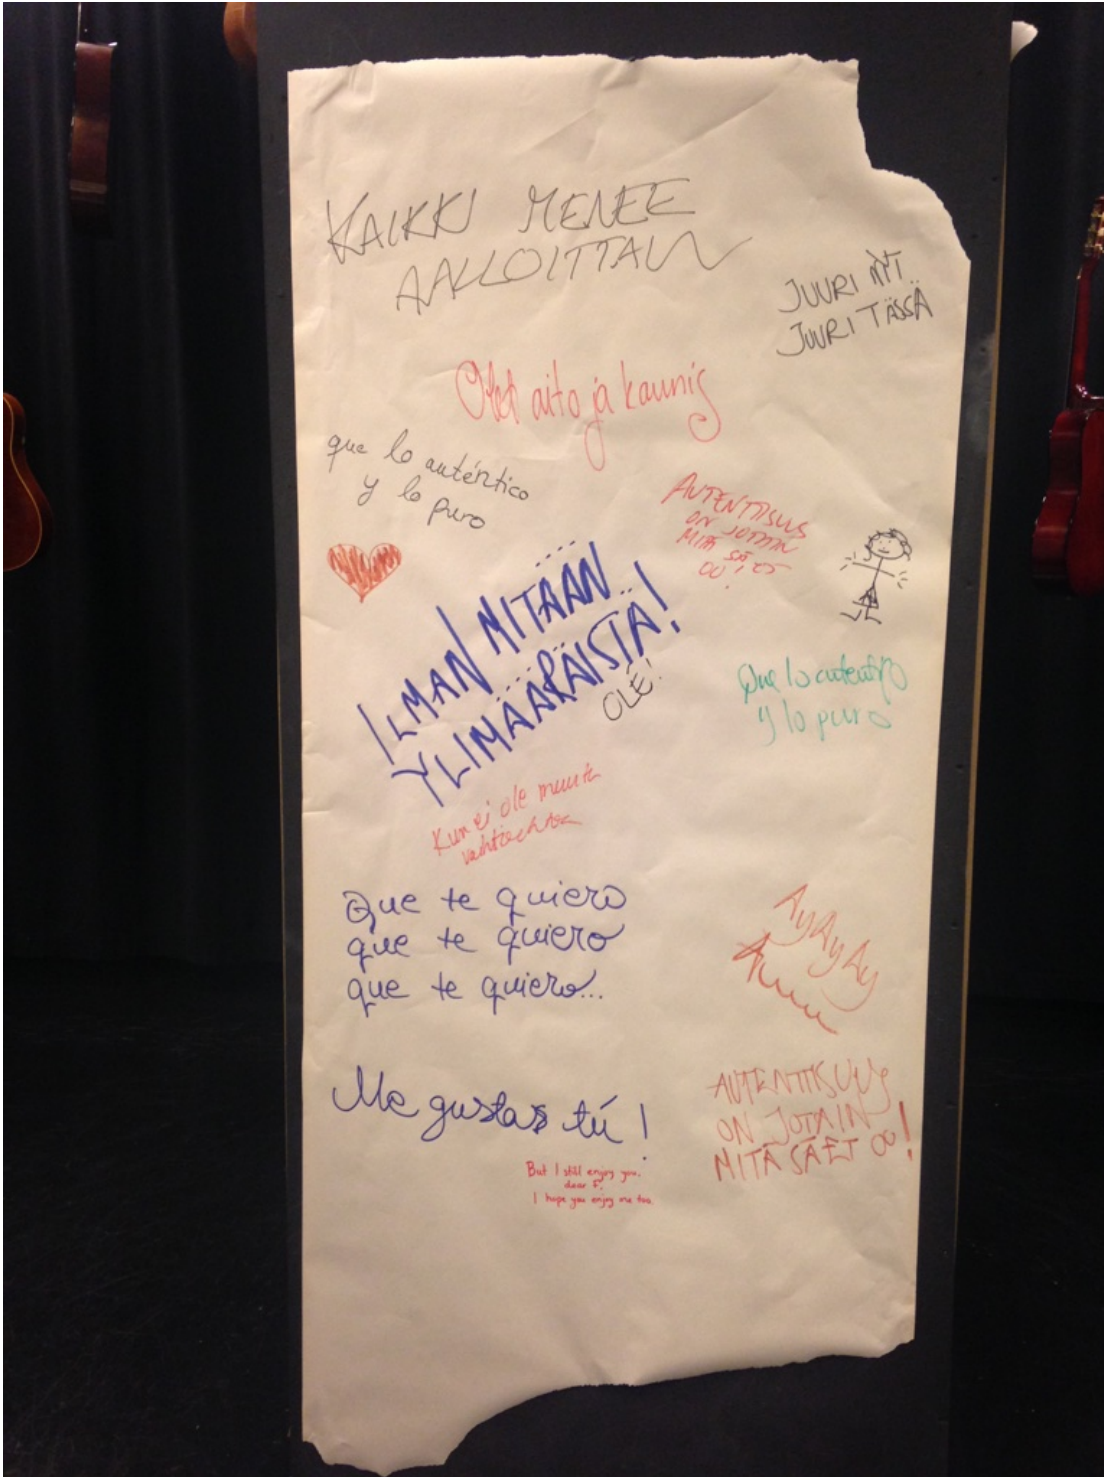 KAIKKI MENEE
AALLOITTAIN
JUURI NYT
JUURI TÄSSÄ
Olet aito ja kaunis
que lo auténtico
y lo puro
AUTENTTISUUS
ON JOTAIN
MITÄ SÄ ET
OO!
ILMAN MITÄÄN
YLIMÄÄRÄISTÄ!
OLÉ!
Que lo autentico
y lo puro
Kun ei ole muuta
vaihtoehtoa
Que te quiero
que te quiero
que te quiero...
AyAyAy
Me gustas tú!
AUTENTTISUUS
ON JOTAIN
MITÄ SÄ ET OO!
But I still enjoy you,
dear F,
I hope you enjoy me too.